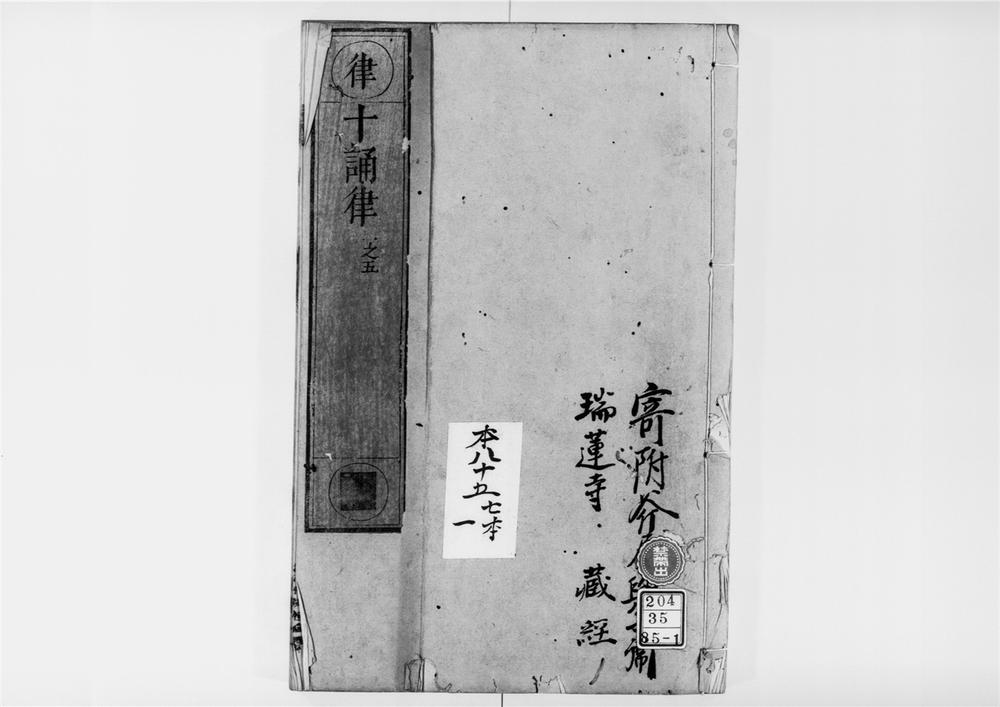 寄附
瑞蓮寺 藏經
禁帶出
204
35
85-1
本八十五 七本
一
律
十誦律
之五